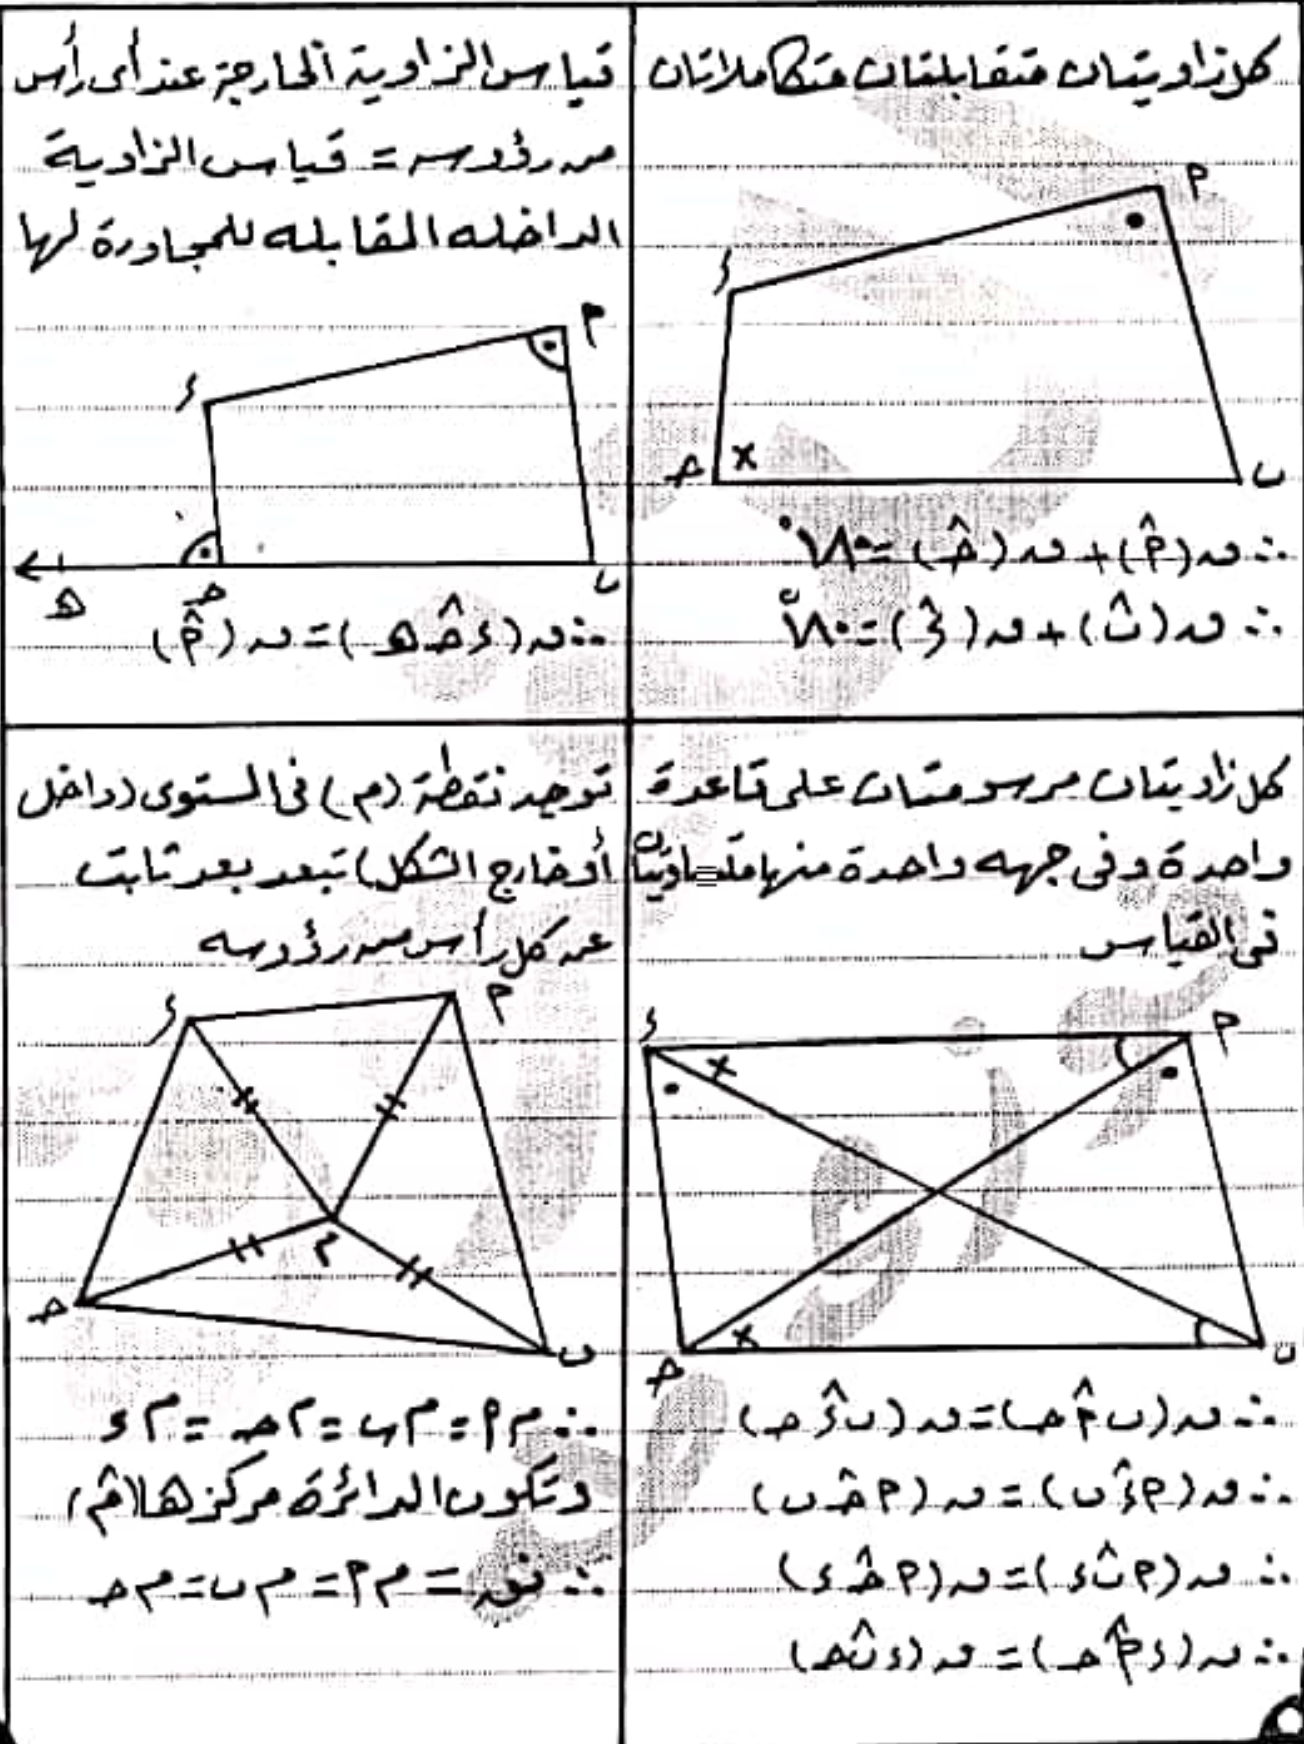 كل زاويتان متقابلتان متكاملاتان
م
ء
×
حـ
ب
∴ ق(م̂) + ق(حـ̂) = ١٨٠°
∴ ق(ب̂) + ق(ء̂) = ١٨٠°
قياس الزاوية الخارجة عند أى رأس
من رؤوسه = قياس الزاوية
الداخله المقابله للمجاورة لها
م
ء
ب
حـ
هـ
∴ ق(ء حـ̂ هـ) = ق(م̂)
كل زاويتان مرسومتان على قاعدة
واحدة وفى جهه واحدة منها متساويتان
فى القياس
ء
م
×
×
حـ
ب
∴ ق(ب م̂ حـ) = ق(ب ء̂ حـ)
∴ ق(م ء̂ ب) = ق(م حـ̂ ب)
∴ ق(م ب̂ ء) = ق(م حـ̂ ء)
∴ ق(ء م̂ حـ) = ق(ء ب̂ حـ)
توجد نقطة (م) فى المستوى (داخل
أو خارج الشكل) تبعد بعد ثابت
عن كل رأس من رؤوسه
ء
م
م
حـ
ب
∴ م م = م ب = م حـ = م ء
وتكون الدائرة مركزها (م)
∴ نق = م م = م ب = م حـ